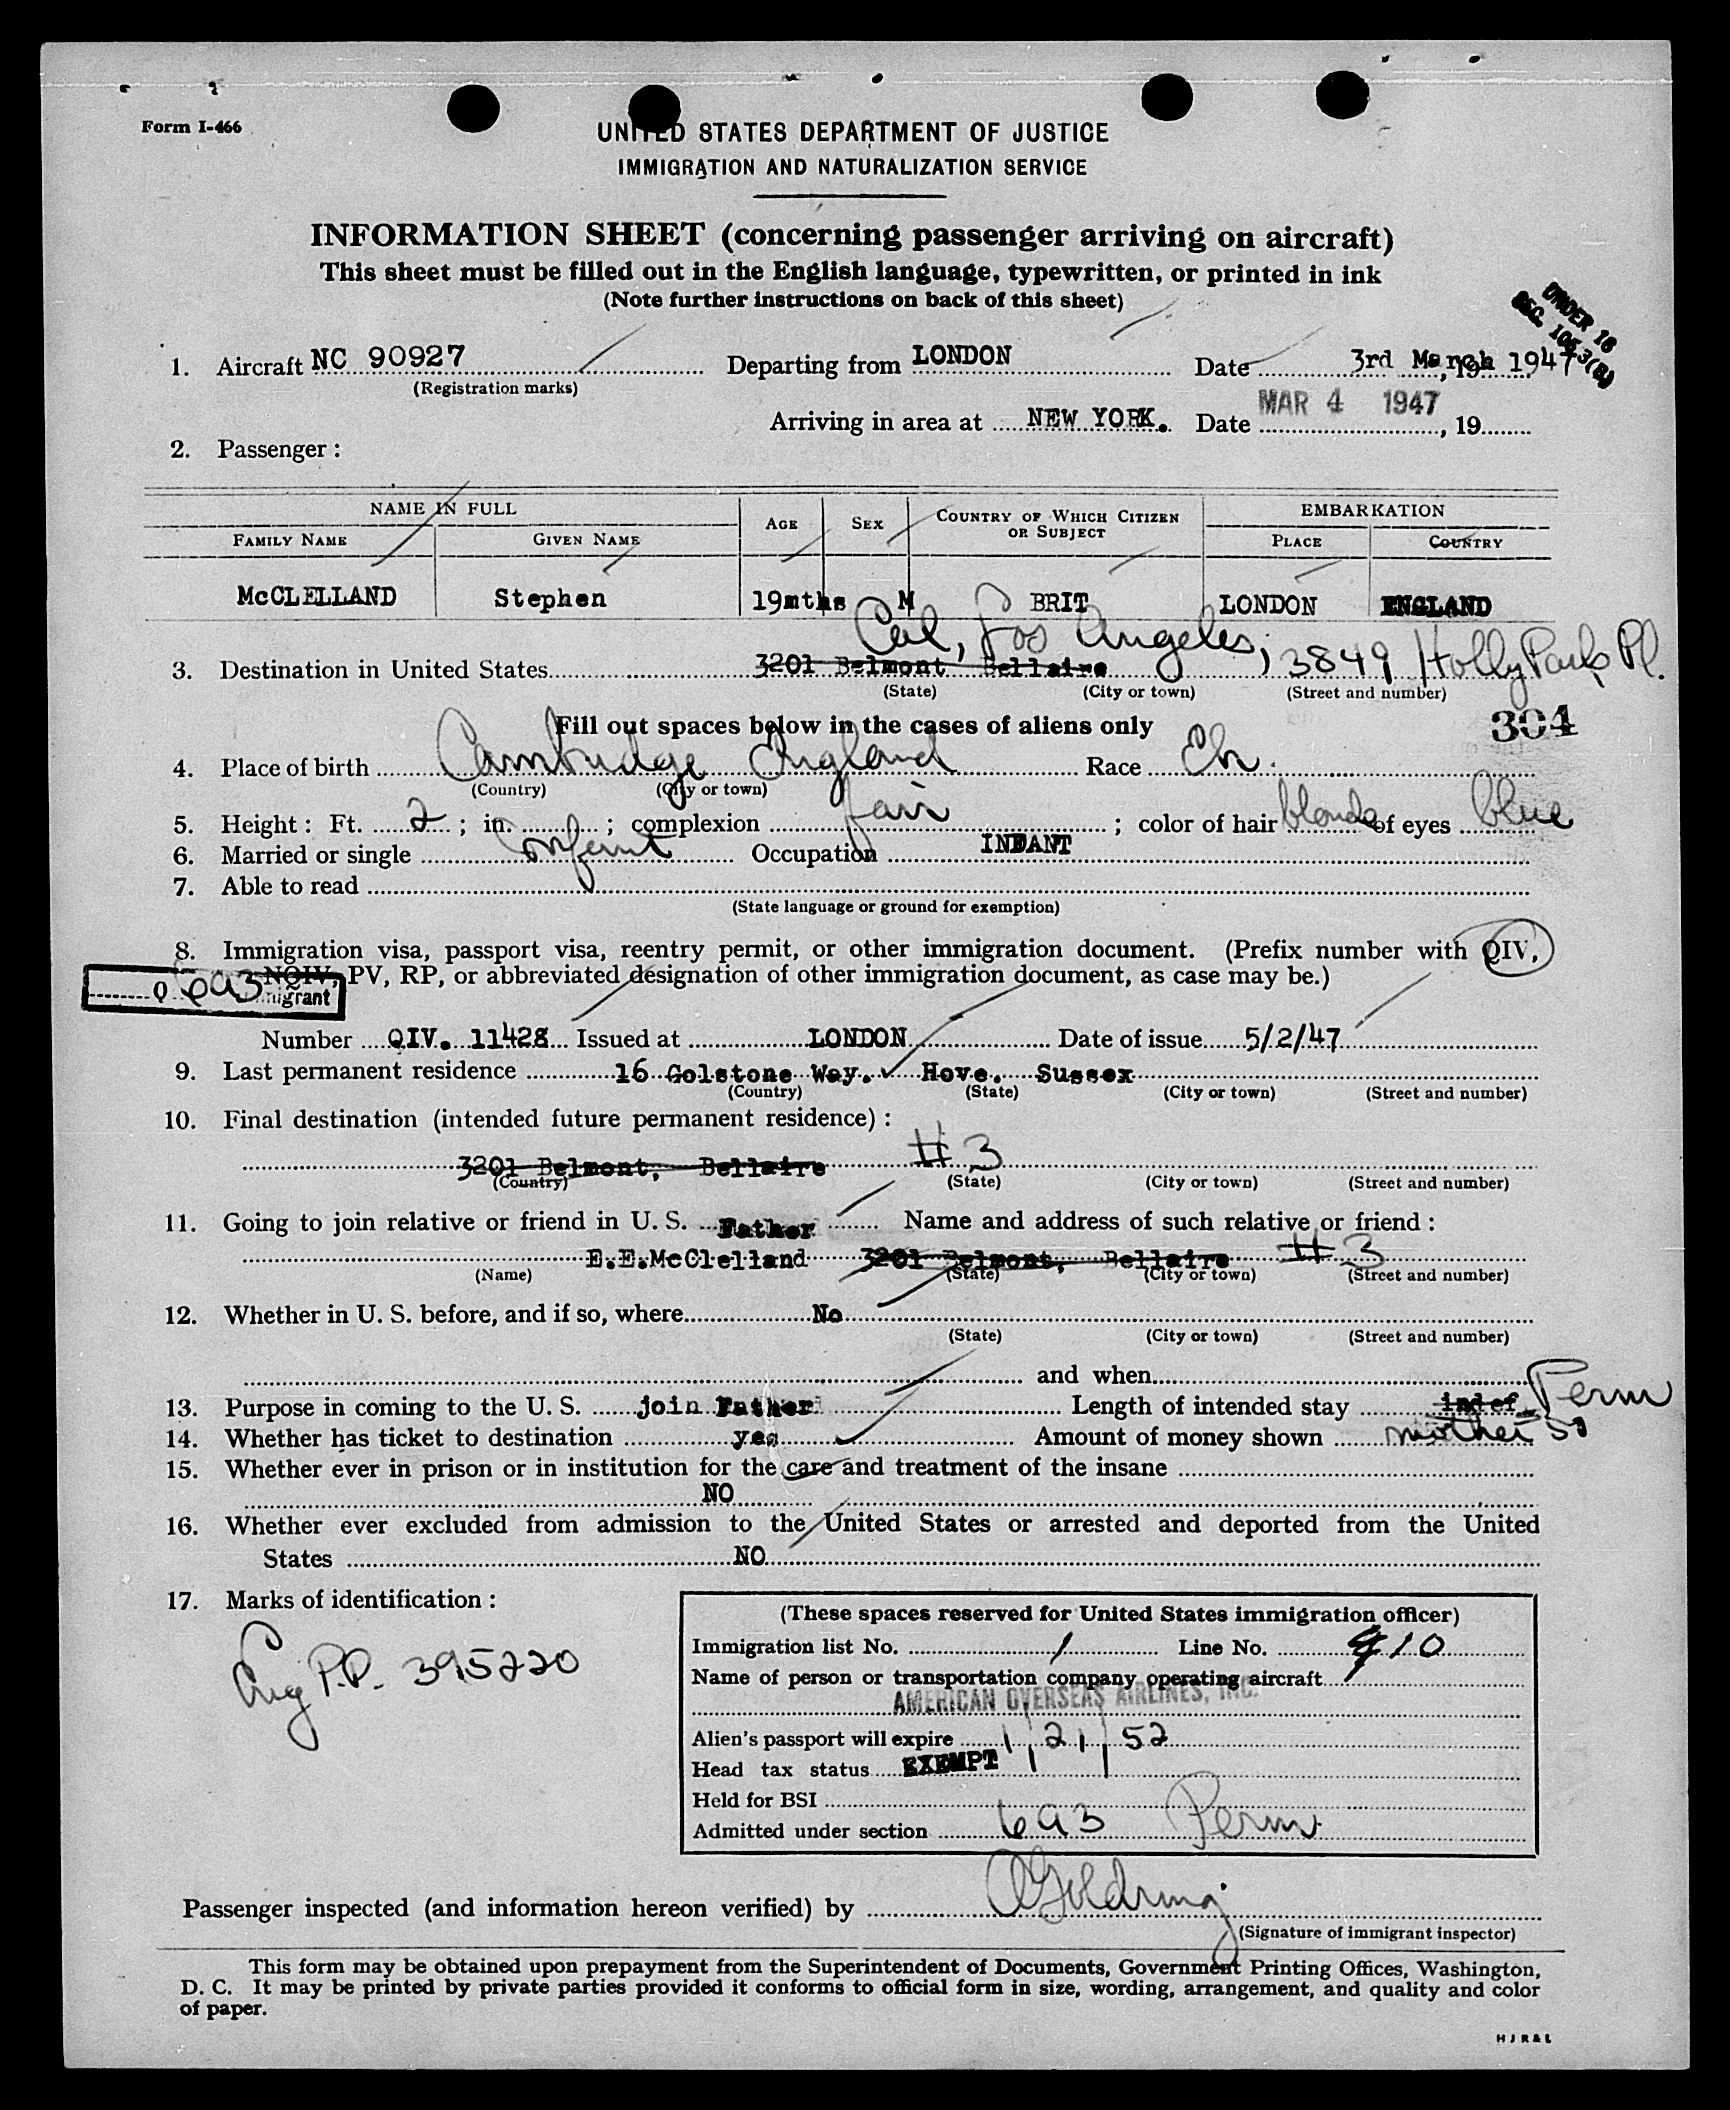 Form I-466
UNITED STATES DEPARTMENT OF JUSTICE
IMMIGRATION AND NATURALIZATION SERVICE
INFORMATION SHEET (concerning passenger arriving on aircraft)
This sheet must be filled out in the English language, typewritten, or printed in ink
(Note further instructions on back of this sheet)
UNDER 16
SEC. 105.3(B)
1. Aircraft NC 90927 Departing from LONDON Date 3rd March 1947, 19
(Registration marks)
Arriving in area at NEW YORK. Date MAR 4 1947, 19
2. Passenger:
NAME IN FULL AGE SEX COUNTRY OF WHICH CITIZEN OR SUBJECT EMBARKATION
FAMILY NAME GIVEN NAME PLACE COUNTRY
McCLELLAND Stephen 19mths M BRIT LONDON ENGLAND
Cal, Los Angeles, 3849 Holly Park Pl.
3. Destination in United States 3201 Belmont Bellaire
(State) (City or town) (Street and number)
Fill out spaces below in the cases of aliens only
304
4. Place of birth Cambridge England Race Eh.
(Country) (City or town)
5. Height: Ft. 2; in. ; complexion fair; color of hair blonde of eyes blue
6. Married or single infant Occupation INFANT
7. Able to read
(State language or ground for exemption)
8. Immigration visa, passport visa, reentry permit, or other immigration document. (Prefix number with QIV,
NQIV, PV, RP, or abbreviated designation of other immigration document, as case may be.)
Q 6a3 migrant
Number QIV. 11428 Issued at LONDON Date of issue 5/2/47
9. Last permanent residence 16 Golstone Way. Hove. Sussex
(Country) (State) (City or town) (Street and number)
10. Final destination (intended future permanent residence):
3201 Belmont, Bellaire # 3
(Country) (State) (City or town) (Street and number)
11. Going to join relative or friend in U. S. Father Name and address of such relative or friend:
E.E.McClelland 3201 Belmont, Bellaire # 3
(Name) (State) (City or town) (Street and number)
12. Whether in U. S. before, and if so, where No
(State) (City or town) (Street and number)
and when
13. Purpose in coming to the U. S. join Father Length of intended stay indef Perm
14. Whether has ticket to destination yes Amount of money shown mother 50
15. Whether ever in prison or in institution for the care and treatment of the insane
NO
16. Whether ever excluded from admission to the United States or arrested and deported from the United
States NO
17. Marks of identification:
Eng P.P. 395220
(These spaces reserved for United States immigration officer)
Immigration list No. 1 Line No. 910
Name of person or transportation company operating aircraft
AMERICAN OVERSEAS AIRLINES, INC.
Alien's passport will expire 1 | 21 | 52
Head tax status EXEMPT
Held for BSI
Admitted under section 6a3 Perm
Passenger inspected (and information hereon verified) by
(Signature of immigrant inspector)
This form may be obtained upon prepayment from the Superintendent of Documents, Government Printing Offices, Washington,
D. C. It may be printed by private parties provided it conforms to official form in size, wording, arrangement, and quality and color
of paper.
H J R & L